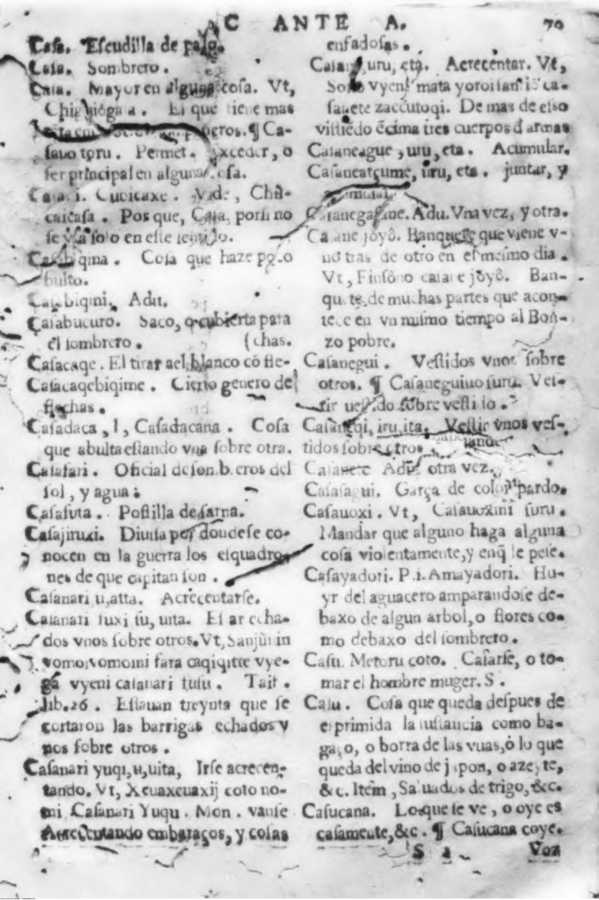 C ANTE A. 70
Casa. Escudilla de palo.
Casa. Sombrero.
Casa. Mayor en alguna cosa. Vt,
El que tiene mas
¶ Ca-
Permet. Exceder, o
ser principal en alguna cosa.
Vide, Cha-
caicasa. Pos que, Casa, por si no
se vsa solo en este sentido.
Casabiqina. Cosa que haze poco
bulto.
Casabiqini, Adu.
Casabucuro. Saco, o cubierta para
el sombrero. (chas.
Casacaqe. El tirar ael blanco cõ fle-
Casacaqebiqime. Cierto genero de
flechas.
Casadaca, l, Casadacana. Cosa
que abulta estando vna sobre otra.
Casafari. Oficial de sombreros del
sol, y agua:
Casafuta. Postilla de sarna.
Casajiruxi. Diuisa por donde se co-
nocen en la guerra los esquadro-
nes de que capitan son.
Casanari u, atta. Acrecentarse.
Casanari fuxi su, uita. Estar echa-
dos vnos sobre otros. Vt, Sanjũ in
vomo, vomoini fara caqiqitte vye-
ga vyeni casanari fusu. Tait.
lib. 26. Estauan treynta que se
cortaron las barrigas echados v
nos sobre otros.
Casanari yuqi, u, uita, Irse acrecen-
tando. Vt, Xeuaxeuaxij coto no-
mi Casanari Yuqu. Mon. vanse
Acrecentando embaraços, y cosas
enfadosas.
uru, eta. Acrecentar. Vt,
vyeni mata yoroi sanriõ ca-
sanete zaccutoqi. De mas de esso
vistiedo ẽcima tres cuerpos d armas
Casaneague, uru, eta. Acumular.
Casaneatçume, uru, eta. juntar, y
acumular.
Casanegasane. Adu. Vna vez, y otra.
Casane jôyǒ. Banquete que viene v-
no tras de otro en el mesmo dia.
Vt, casane jôyǒ. Ban-
quetes, de muchas partes que acon-
tece en vn mismo tiempo al Bon-
zo pobre.
Casanegui. Vestidos vnos sobre
otros. ¶ Casaneguiuo suru. Ves-
tir vestido sobre vestido.
Casaneqi, iru, ita. Vestir vnos ves-
tidos sobre otros.
Casanete Adu. otra vez.
Casasagui. Garça de color pardo.
Casauoxi. Vt, Casauoxini suru.
Mandar que alguno haga alguna
cosa violentamente, y enq̃ le pese.
Casayadori. P. i. Amayadori. Hu-
yr del aguacero amparandose de-
baxo de algun arbol, o flores co-
mo debaxo del sombrero.
Casu. Metoru coto. Casarse, o to-
mar el hombre muger. S.
Casu. Cosa que queda despues de
exprimida la sustancia como ba-
gaço, o borra de las vuas, ó lo que
queda del vino de japon, o azeyte,
&c. Itẽm, Saluados de trigo, &c.
Casucana. Lo que se ve, o oye es
casamente, &c. ¶ Casucana coye.
S 2 Voz